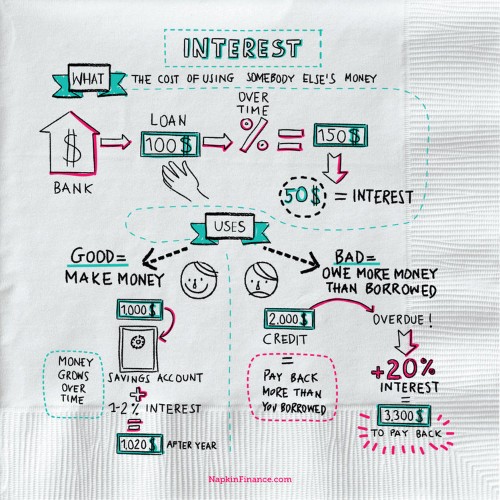 INTEREST
WHAT THE COST OF USING SOMEBODY ELSE'S MONEY
OVER
TIME
LOAN
$
100$
%
150$
BANK
50$ = INTEREST
USES
GOOD=
MAKE MONEY
BAD=
OWE MORE MONEY
THAN BORROWED
1,000$
MONEY
GROWS
OVER
TIME
SAVINGS ACCOUNT
+
1-2% INTEREST
=
1,020$ AFTER YEAR
2,000$
CREDIT
=
PAY BACK
MORE THAN
YOU BORROWED
OVERDUE!
+20%
INTEREST
=
3,300$
TO PAY BACK
NapkinFinance.com